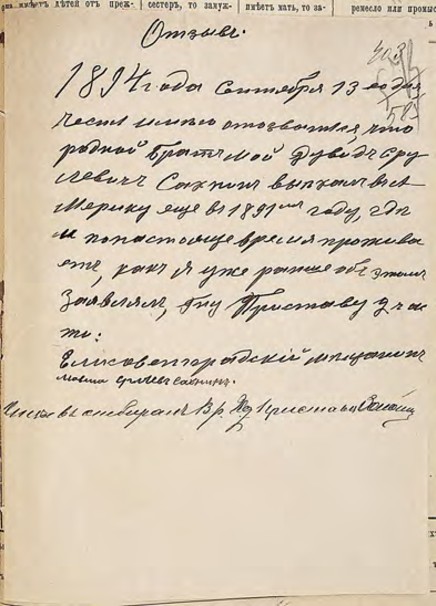 имѣетъ дѣтей отъ преж- сестеръ, то замуж- имѣетъ мать, то за- ремесло или промыс
Отзывъ.
1894 года Сентября 13 го дня
честь имѣю отозватся, что
родной братъ мой Дувидъ Сру
левичъ Сахнинъ выехалъ въ А
мерику еще въ 1891 мъ году, гдѣ
и по настоящее время прожива
етъ, какъ я уже раньше объ этомъ
Заявлялъ, Гну Приставу 2 час
ти:
Елисаветградскій мѣщанинъ
Сахнинъ.
отбиралъ Пристава